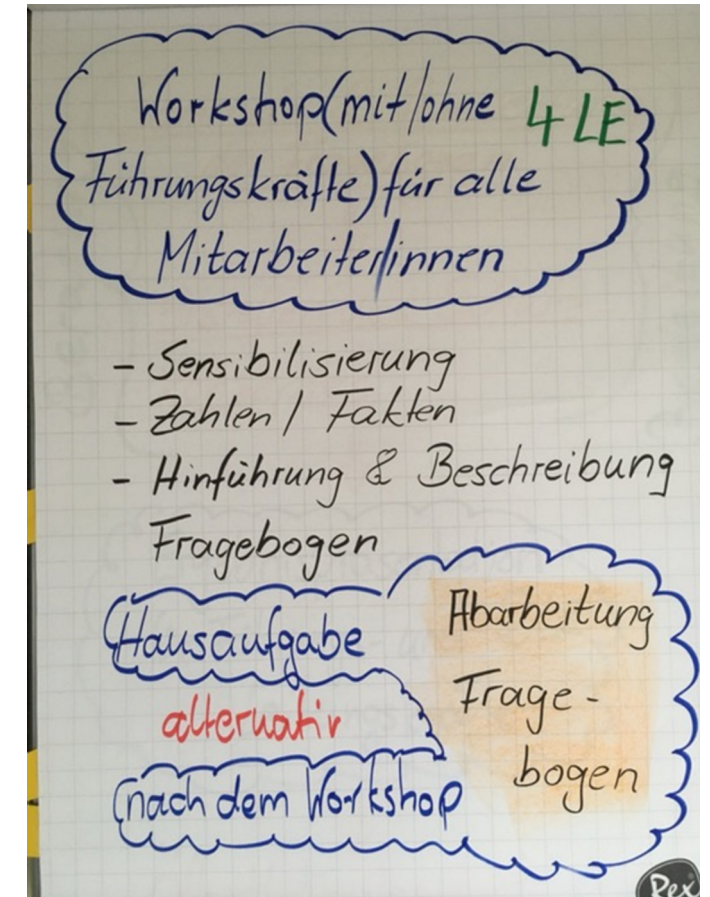 Workshop(mit/ohne 4 LE
Führungskräfte) für alle
Mitarbeiter/innen
- Sensibilisierung
- Zahlen / Fakten
- Hinführung & Beschreibung
Fragebogen
Hausaufgabe
alternativ
nach dem Workshop
Abarbeitung
Frage-
bogen
Rex